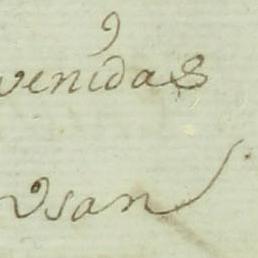 venidas
vsan